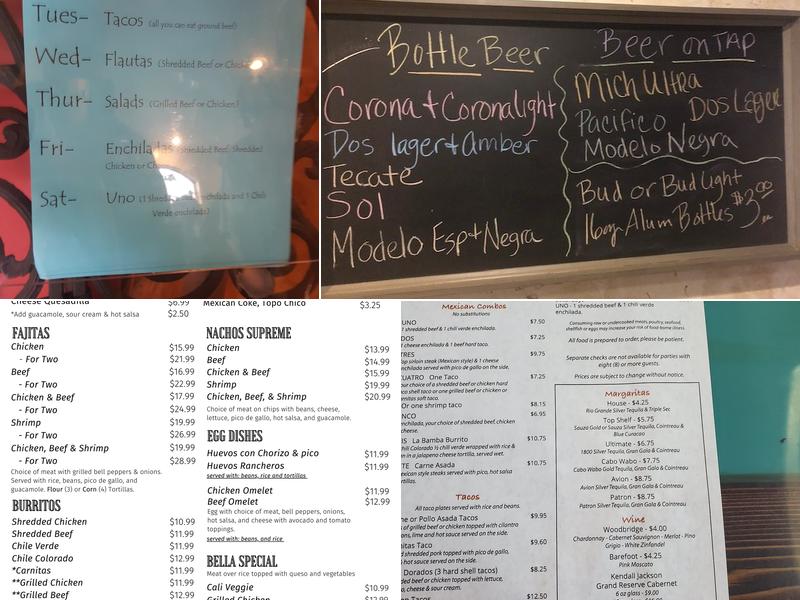 Tues- Tacos (all you can eat ground beef)
Wed- Flautas (Shredded Beef or Chicken)
Thur- Salads (Grilled Beef or Chicken)
Fri- Enchiladas (Shredded Beef, Shredded
Chicken or
Sat- Uno (1 Shredded enchilada and 1 Chili
Verde enchilada)
Bottle Beer
Corona + Corona light
Dos lager + Amber
Tecate
Sol
Modelo Esp + Negra
Beer on TAP
Mich Ultra
Pacifico Dos Lager
Modelo Negra
Bud or Bud Light
16oz Alum Bottles $3.00
Cheese Quesadilla $6.99
*Add guacamole, sour cream & hot salsa $2.50
FAJITAS
Chicken $15.99
- For Two $21.99
Beef $16.99
- For Two $22.99
Chicken & Beef $17.99
- For Two $24.99
Shrimp $19.99
- For Two $26.99
Chicken, Beef & Shrimp $19.99
- For Two $28.99
Choice of meat with grilled bell peppers & onions.
Served with rice, beans, pico de gallo, and
guacamole. Flour (3) or Corn (4) Tortillas.
BURRITOS
Shredded Chicken $10.99
Shredded Beef $11.99
Chile Verde $11.99
Chile Colorado $12.99
*Carnitas $11.99
**Grilled Chicken $11.99
**Grilled Beef $12.99
Mexican Coke, Topo Chico $3.25
NACHOS SUPREME
Chicken $13.99
Beef $14.99
Chicken & Beef $15.99
Shrimp $19.99
Chicken, Beef, & Shrimp $20.99
Choice of meat on chips with beans, cheese,
lettuce, pico de gallo, hot salsa, and guacamole.
EGG DISHES
Huevos con Chorizo & pico $11.99
Huevos Rancheros $11.99
served with: beans, rice and tortillas
Chicken Omelet $11.99
Beef Omelet $12.99
Egg with choice of meat, bell peppers, onions,
hot salsa, and cheese with avocado and tomato
toppings.
served with: beans, and rice.
BELLA SPECIAL
Meat over rice topped with queso and vegetables
Cali Veggie $10.99
Grilled Chicken $12.99
Mexican Combos
No substitutions
UNO $7.50
1 shredded beef & 1 chili verde enchilada.
DOS $7.25
1 cheese enchilada & 1 beef hard taco.
TRES $9.75
Top sirloin steak (Mexican style) & 1 cheese
enchilada served with pico de gallo on the side.
CUATRO One Taco $7.25
our choice of a shredded beef or chicken hard
shell taco or one grilled beef or chicken or
soft taco.
Or one shrimp taco $8.15
$6.95
enchilada, your choice of shredded beef, chicken
cheese.
La Bamba Burrito $10.75
Chili Colorado ½ chili verde wrapped with rice &
in a jalapeno cheese tortilla, served wet.
Carne Asada $10.75
style steaks served with pico, hot salsa
tortillas.
Tacos
All taco plates served with rice & beans.
or Pollo Asada Tacos $9.95
of grilled beef or chicken topped with cilantro
onions, lime and hot salsa served on the side.
Tacos $9.60
shredded pork topped with pico de gallo,
hot salsa served on the side.
Dorados (3 hard shell tacos) $8.25
beef or chicken topped with lettuce,
cheese & sour cream.
$12.50
UNO - 1 shredded beef & 1 chili verde
enchilada.
Consuming raw or undercooked meats, poultry, seafood,
shellfish or eggs may increase your risk of food-borne illness.
All food is prepared to order, please be patient.
Separate checks are not available for parties with
eight (8) or more guests.
Prices are subject to change without notice.
Margaritas
House - $4.25
Rio Grande Silver Tequila & Triple Sec
Top Shelf - $5.75
Sauza Gold or Sauza Silver Tequila, Cointreau &
Blue Curacao
Ultimate - $6.75
1800 Silver Tequila, Gran Gala & Cointreau
Cabo Wabo - $7.75
Cabo Wabo Gold Tequila, Gran Gala & Cointreau
Avion - $8.75
Avion Silver Tequila, Gran Gala & Cointreau
Patron - $8.75
Patron Silver Tequila, Gran Gala & Cointreau
Wine
Woodbridge - $4.00
Chardonnay - Cabernet Sauvignon - Merlot - Pino
Grigio - White Zinfandel
Barefoot - $4.25
Pink Moscato
Kendall Jackson
Grand Reserve Cabernet
6 oz glass - $9.00